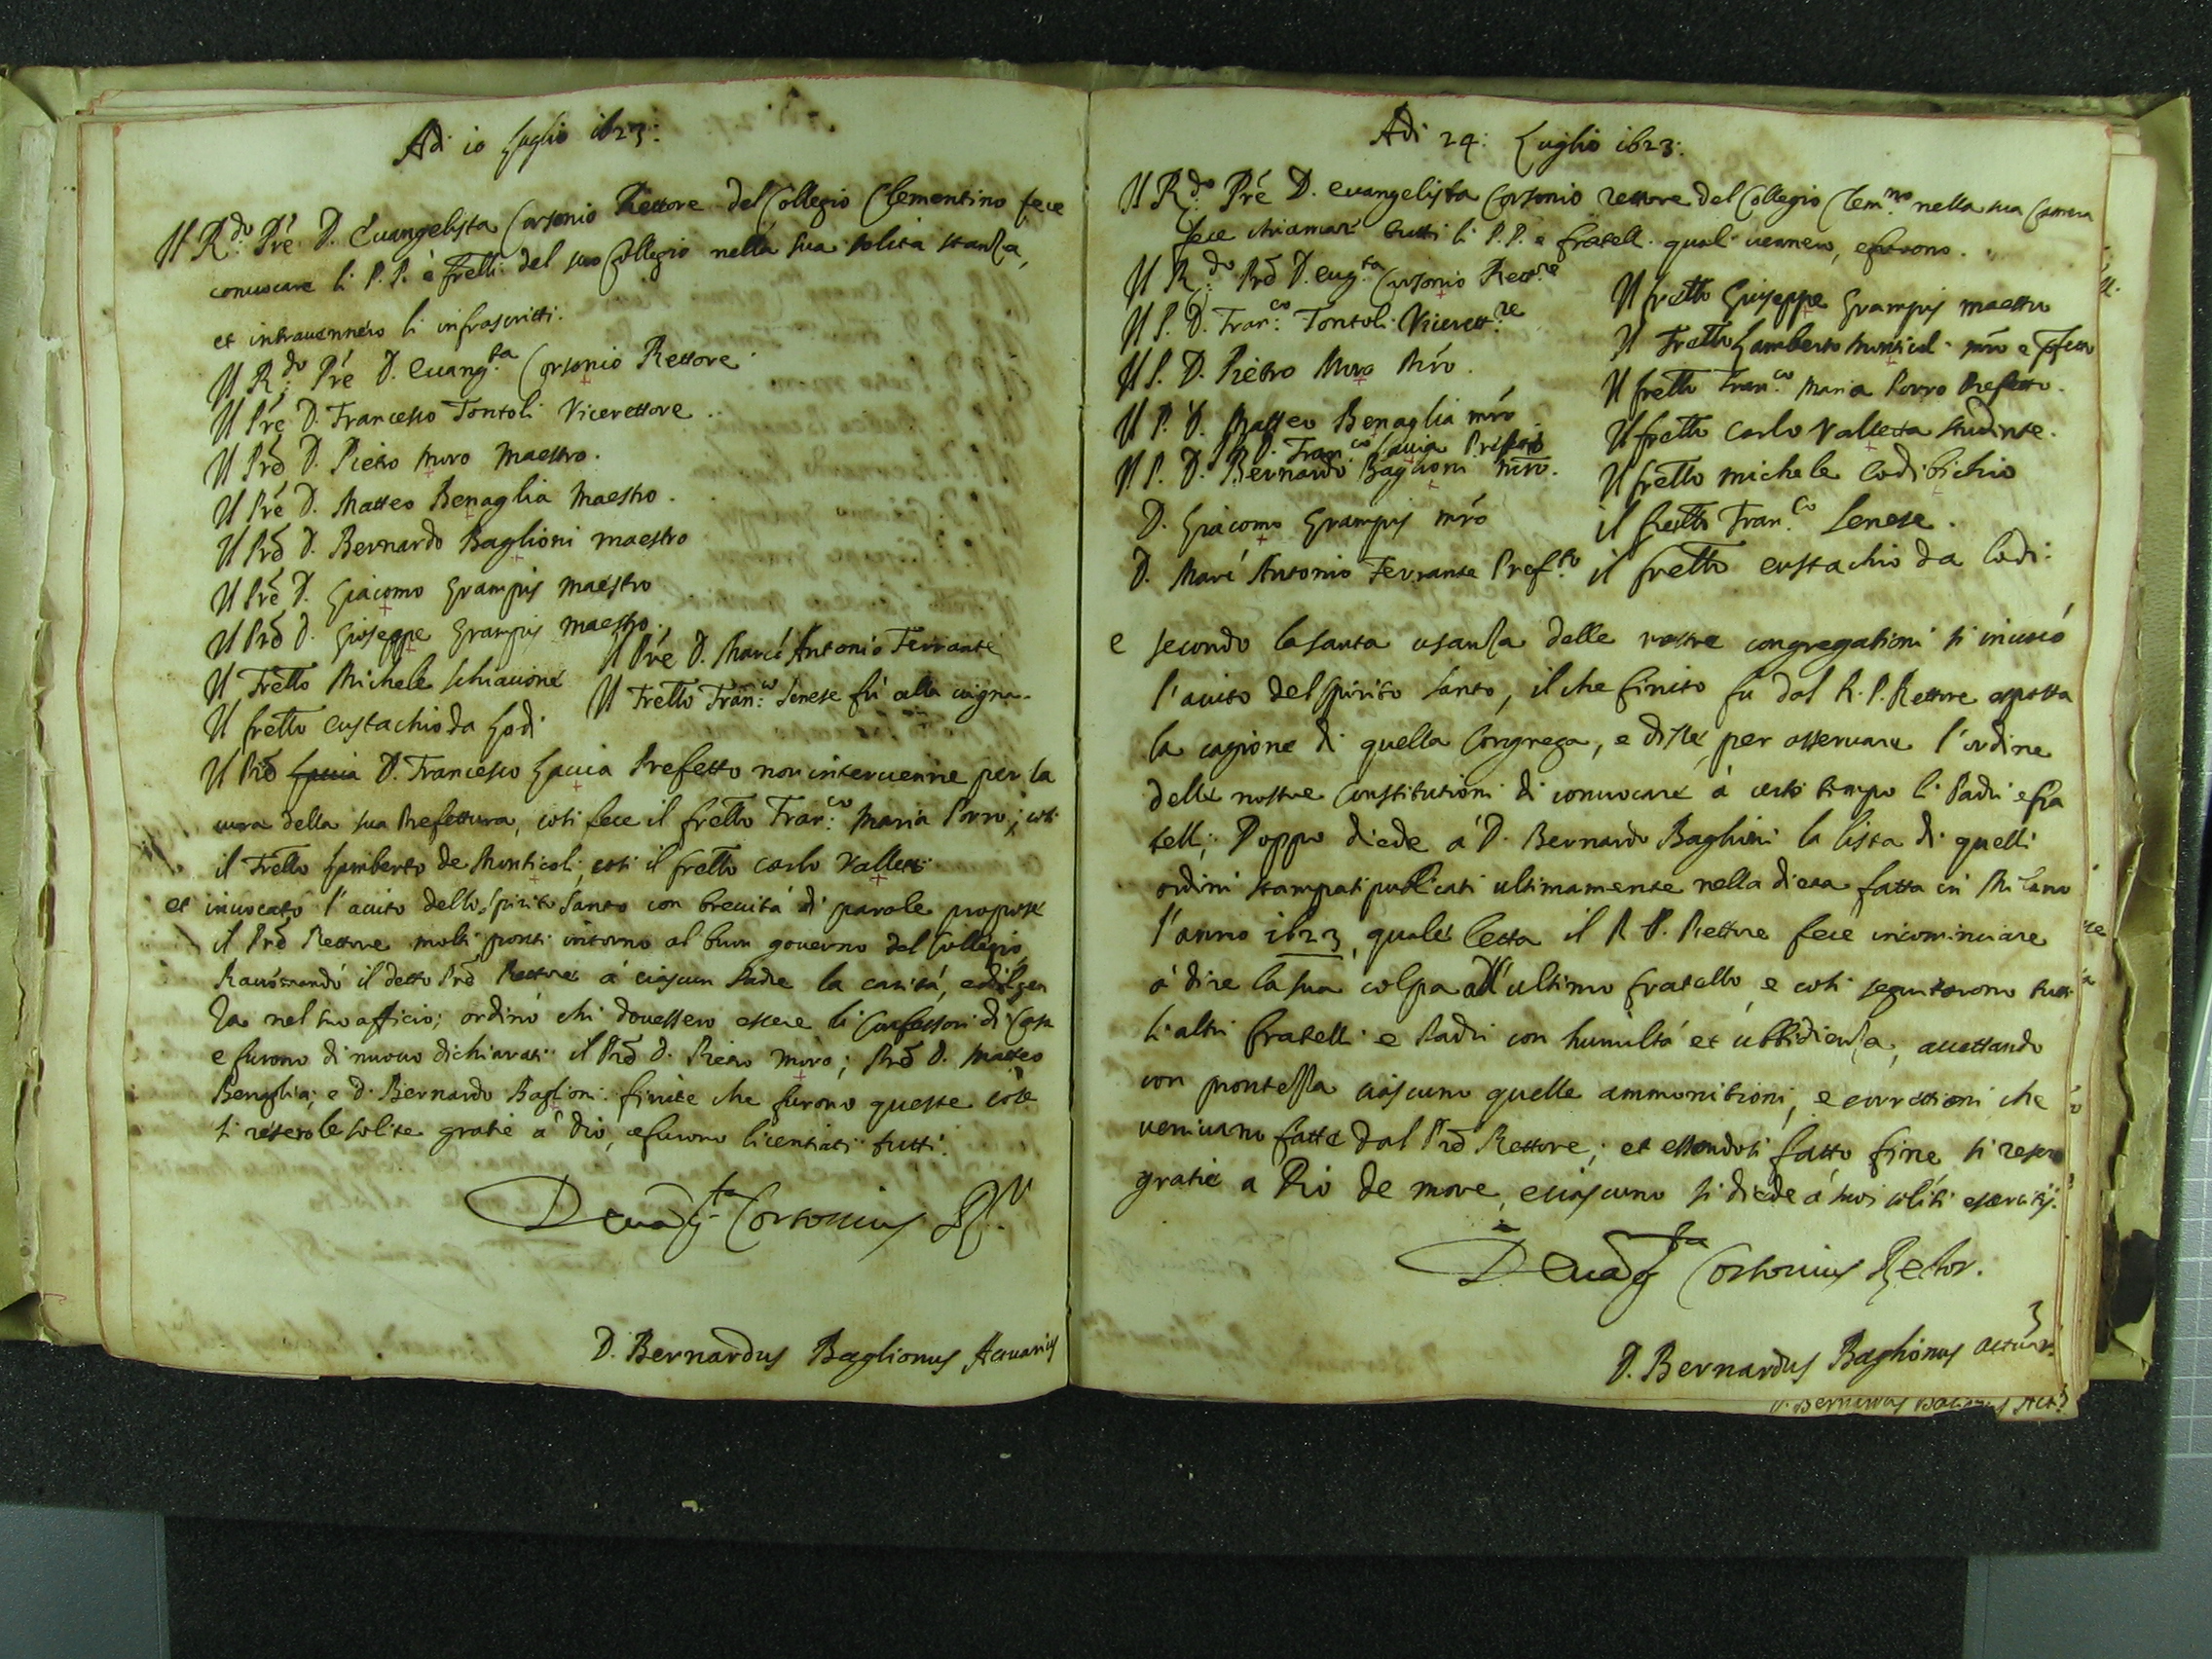 Adi 10 Luglio 1623:
Il R.do Pre D. Euangelista Cortonio Rettore del Collegio Clementino fece
conuocare li P.P. è fretti del suo Collegio nella sua solita stanza,
et interuennero li infrascritti.
Il R.do Pre D. Euang.ta Cortonio Rettore
Il Pre D. Francesco Tontoli Vicerettore
Il Pre D. Pietro Moro Maestro.
Il Pre D. Matteo Benaglia Maestro.
Il Pre D. Bernardo Baglioni maestro
Il Pre D. Giacomo Grampis maestro
Il Pre D. Gioseppe Grampis maestro.
Il Pre D. Marc' Antonio Ferrante
Il Fretto Michele Schiauone
Il Fretto Fran.co Senese fù alla uigna.
Il fretto eustachio da Lodi
Il Pre D. Francesco Lauia Prefetto non interuenne per la
cura della sua Prefettura, così fece il fretto Fran.co Maria Porro; così
il Fretto Lamberto de Monticoli, così il fretto carlo Valletti
et inuocato l'aiuto dello Spirito Santo con breuità di parole propose
il Pre Rettore molti ponti intorno al buon gouerno del Collegio
il detto Pre Rettore à ciascun Padre la carità, e diligen
za nel suo officio; ordinò chi douessero essere li Confessori di Casa
e furono di nuouo dichiarati il Pre D. Pietro Moro; Pre D. Matteo
Benaglia; e D. Bernardo Baglioni. finite che furono queste cose
si resero le solite gratie à Dio, e furono licentiati tutti.
D Euag.ta Cortonius
D. Bernardus Baglionus Actuarius
Adi 24: Luglio 1623:
Il R.do Pre D. euangelista Cortonio rettore del Collegio Clem.no nella sua Camera
fece chiamar tutti li P.P. e fratelli quali uennero, e furono.
Il R.do Pre D. eug.ta Cortonio Rett.re
Il P. D. Fran.co Tontoli Vicerett.re
Il P. D. Pietro Moro Mro.
Il P. D. Matteo Benaglia mro
D. Fran.co Lauia Prefetto
Il P. D. Bernardo Baglioni mro.
D. Giacomo Grampis mro
D. Marc' Antonio Ferrante Pref.to
Il fretto Giuseppe Grampis maestro
Il Fretto Lamberto Monticoli mro e
Il fretto Fran.co Maria Porro Prefetto.
Il fretto carlo Valletta studente.
Il fretto michele
il fretto Fran.co Senese.
il fretto eustachio da Lodi:
e secondo la santa usanza delle nostre congregationi si inuocò
l'aiuto del Spirito Santo, il che finito fu dal R. P. Rettore esposta
la cagione di quella Congrega, e disse, per osseruare l'ordine
delle nostre Constitutioni di conuocare à certo tempo li Padri e fra
telli; Doppo diede à D. Bernardo Baglioni la lista di quelli
ordini stampati publicati ultimamente nella dieta fatta in Milano
l'anno 1623, quale letta il R P. Rettore fece incominciare
à dire la sua colpa all'ultimo fratello, e così seguitorono tutti
li altri fratelli e Padri con humiltà et ubbidienza, accettando
con prontezza ciascuno quelle ammonitioni, e correttioni che
ueniuano fatte dal Pre Rettore; et essendosi fatto fine, si resero
gratie a Dio de more, e ciascuno si diede à suoi soliti esercitij.
D. Euag.ta Cortonius Rector.
3
D. Bernardus Baglionus actuar.